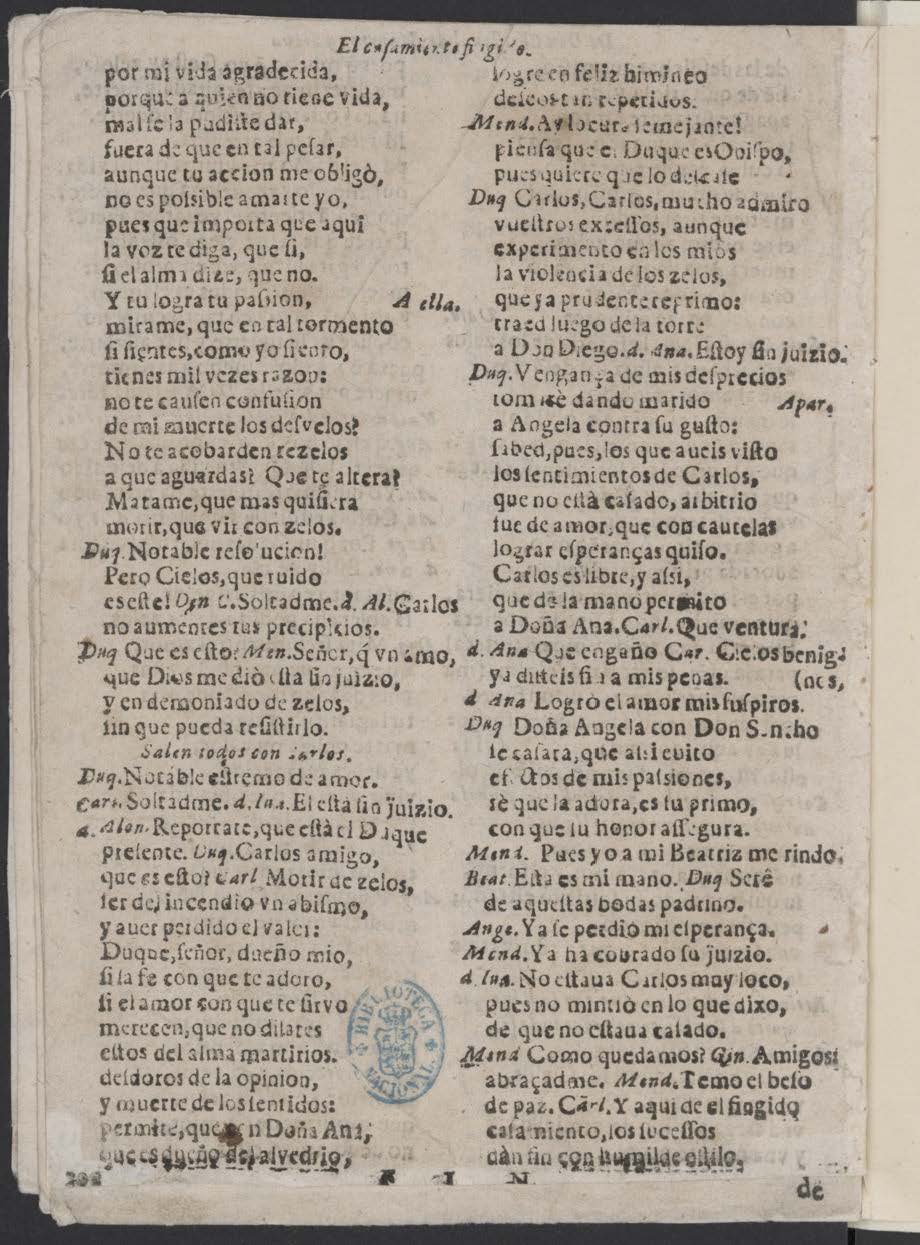 El casamiento fingido.
por mi vida agradecida,
porque a quien no tiene vida,
mal se la pudiste dar,
fuera de que en tal pesar,
aunque tu accion me obligò,
no es possible amarte yo,
pues que importa que aqui
la voz te diga, que si,
si el alma dize, que no.
Y tu logra tu passion, A ella.
mirame, que en tal tormento
si sientes, como yo siento,
tienes mil vezes razon:
no te causen confusion
de mi muerte los desvelos?
No te acobarden rezelos
a que aguardas? Que te altera?
Matame, que mas quisiera
morir, que vir con zelos.
Duq. Notable resolucion!
Pero Cielos, que ruido
es este! Don C. Soltadme. d. Al. Carlos
no aumentes tus precipicios.
Duq Que es esto? Men. Señor, q̃ vn amo,
que Dios me diò està sin juizio,
y en demoniado de zelos,
sin que pueda resistirlo.
Salen todos con Carlos.
Duq. Notable estremo de amor.
Carl. Soltadme. d. Iua. El està sin juizio.
d. Alon. Reportate, que està el Duque
presente. Duq. Carlos amigo,
que es esto? Carl Morir de zelos,
ser del incendio vn abismo,
y auer perdido el valor:
Duque, señor, dueño mio,
si la fe con que te adoro,
si el amor con que te sirvo
merecen, que no dilates
estos del alma martirios.
desdoros de la opinion,
y muerte de los sentidos:
permite, que en Doña Ana,
que es dueño del alvedrio,
logre en feliz himineo
deseos tan repetidos.
Mend. Ay locura semejante!
piensa que el Duque es Obispo,
pues quiere que lo descase
Duq Carlos, Carlos, mucho admiro
vuestros excessos, aunque
experimento en los mios
la violencia de los zelos,
que ya prudente reprimo:
traed luego de la torre
a Don Diego. d. Ana. Estoy sin juizio.
Duq. Vengança de mis desprecios
tomarè dando marido Apar.
a Angela contra su gusto:
sabed, pues, los que aueis visto
los sentimientos de Carlos,
que no està casado, arbitrio
fue de amor, que con cautelas
lograr esperanças quiso.
Carlos es libre, y assi,
que dè la mano permito
a Doña Ana. Carl. Que ventura!
d. Ana Que engaño Car. Cielos benig-
ya disteis fin a mis penas. (nos,
d Ana Logrò el amor mis suspiros.
Duq Doña Angela con Don Sancho
se casara, que assi euito
efectos de mis passiones,
sè que la adora, es su primo,
con que su honor assegura.
Mend. Pues yo a mi Beatriz me rindo.
Beat. Esta es mi mano. Duq Serê
de aquestas bodas padrino.
Ange. Ya se perdio mi esperança.
Mend. Ya ha cobrado su juizio.
d. Iua. No estaua Carlos muy loco,
pues no mintiò en lo que dixo,
de que no estaua casado.
Mend Como quedamos? Gin. Amigos:
abraçadme. Mend. Temo el beso
de paz. Carl. Y aqui de el fingido
casamiento, los sucessos
dàn fin con humilde estilo.
202
F I N
de
BIBLIOTECA NACIONAL